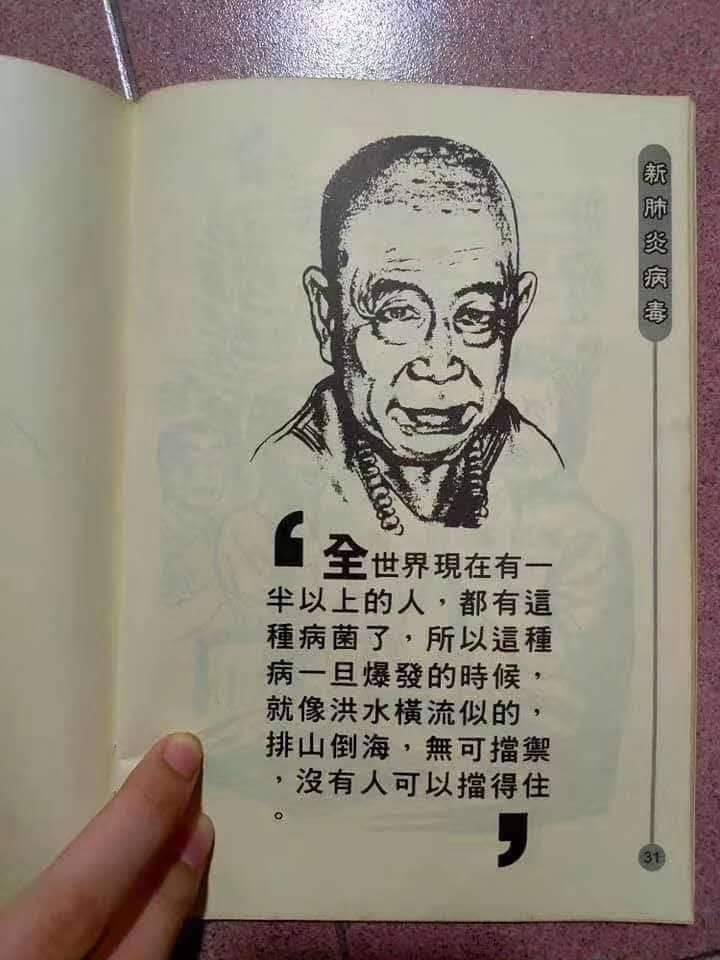 新肺炎病毒
‘全世界現在有一
半以上的人，都有這
種病菌了，所以這種
病一旦爆發的時候，
就像洪水橫流似的，
排山倒海，無可擋禦
，沒有人可以擋得住
。’
31